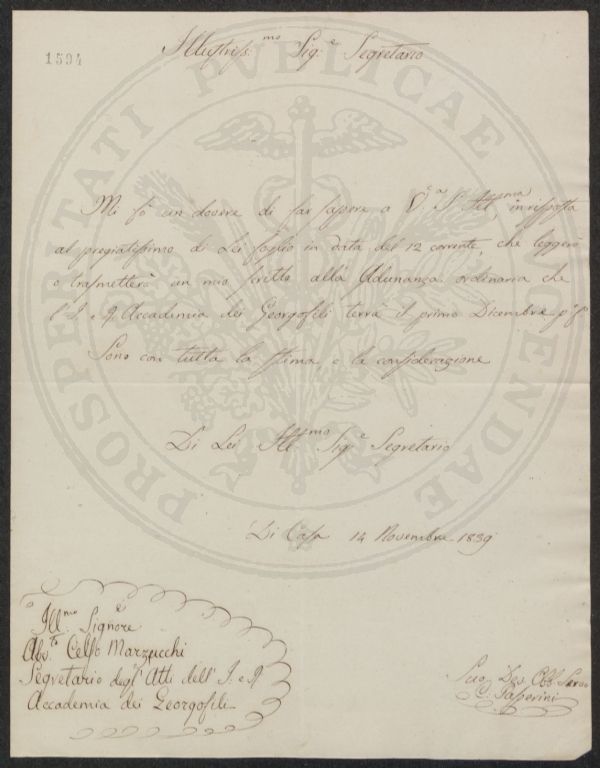 1594
Illustriss.mo Sig.e Segretario
PROSPERITATI PVBLICAE AVGENDAE
Mi fò un dovere di far sapere a V.a S. Ill.ma, in risposta
al pregiatissimo di Lei foglio in data del 12 corrente, che leggerò
o trasmetterò un mio scritto alla Adunanza ordinaria che
l'I. e R. Accademia dei Georgofili terrà il primo Dicembre
Sono con tutta la stima, e la considerazione
Di Lei Ill.mo Sig.e Segretario
Di Casa 14 Novembre 1839
Ill.mo Signore
Celso Marzucchi
Segretario degl'Atti dell'I. e R.
Accademia dei Georgofili
Suo Dev. Obb. Servo
Gasperini